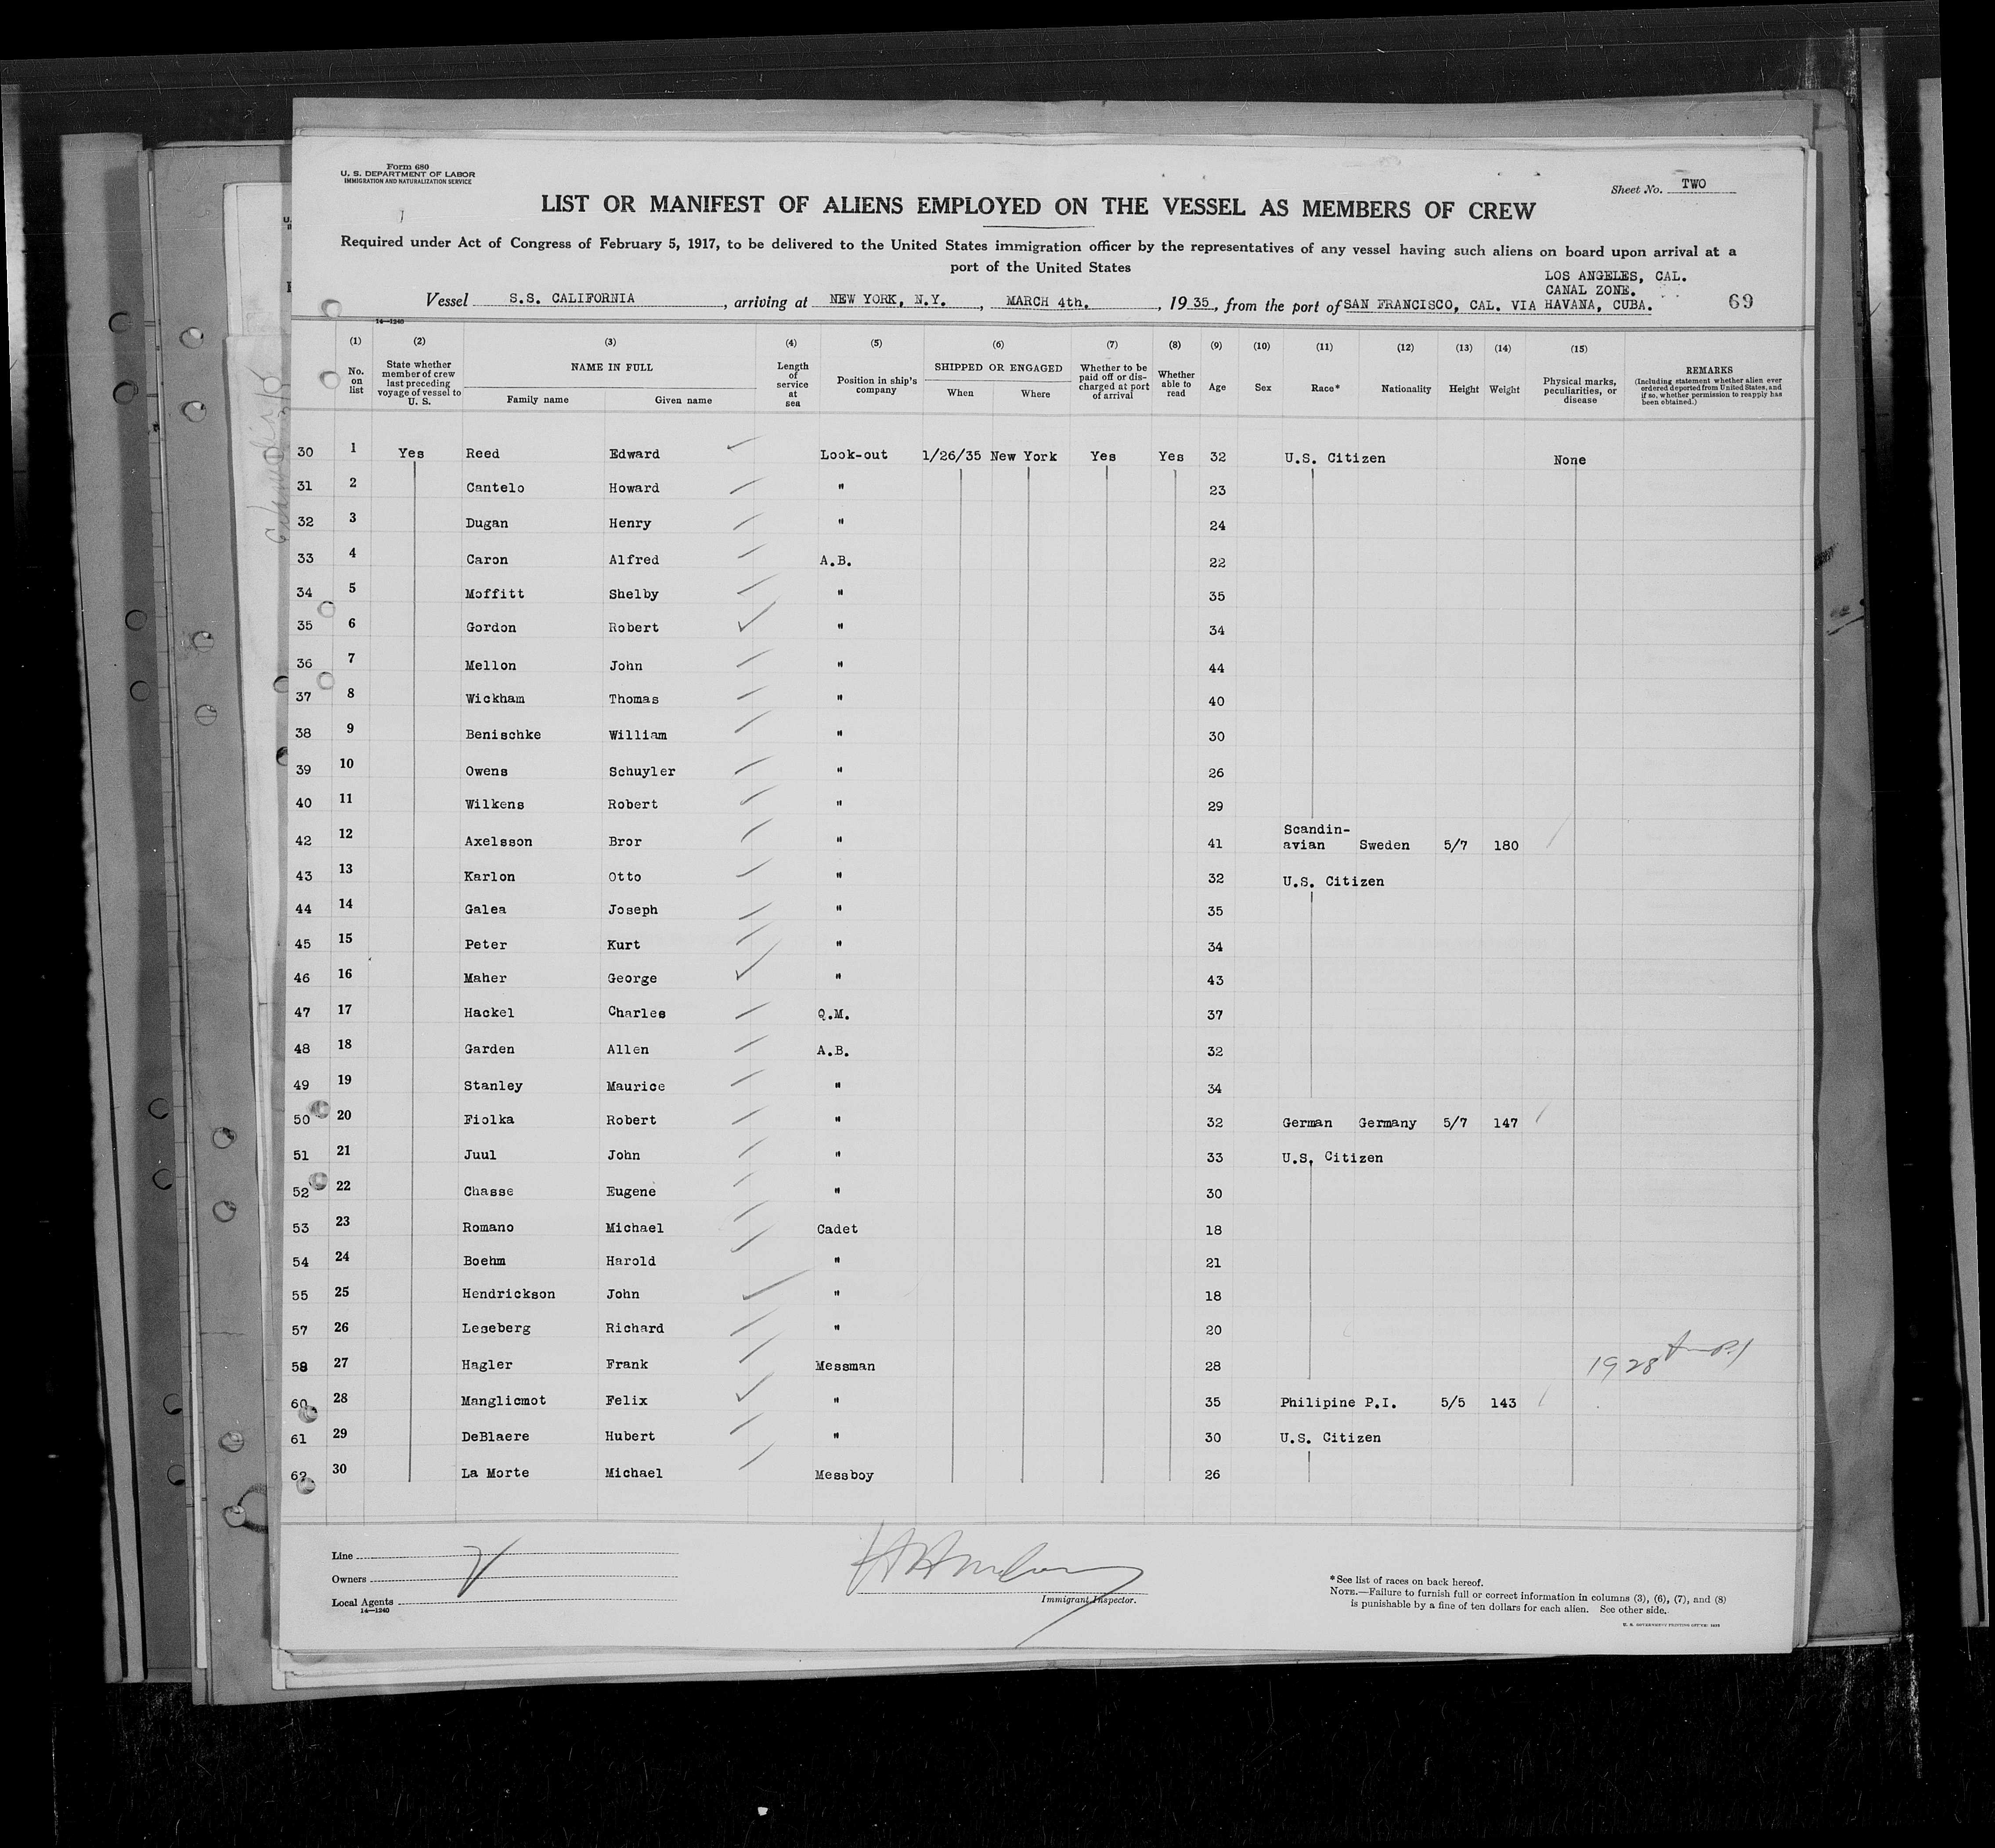 Form 680
U. S. DEPARTMENT OF LABOR
IMMIGRATION AND NATURALIZATION SERVICE
Sheet No. TWO
LIST OR MANIFEST OF ALIENS EMPLOYED ON THE VESSEL AS MEMBERS OF CREW
Required under Act of Congress of February 5, 1917, to be delivered to the United States immigration officer by the representatives of any vessel having such aliens on board upon arrival at a
port of the United States
LOS ANGELES, CAL.
CANAL ZONE.
Vessel S.S. CALIFORNIA, arriving at NEW YORK, N.Y., MARCH 4th., 1935, from the port of SAN FRANCISCO, CAL. VIA HAVANA, CUBA. 69
14—1240
(1) (2) (3) (4) (5) (6) (7) (8) (9) (10) (11) (12) (13) (14) (15)
No. on list
State whether member of crew last preceding voyage of vessel to U. S.
NAME IN FULL
Family name Given name
Length of service at sea
Position in ship's company
SHIPPED OR ENGAGED
When Where
Whether to be paid off or discharged at port of arrival
Whether able to read
Age Sex Race* Nationality Height Weight
Physical marks, peculiarities, or disease
REMARKS
(Including statement whether alien ever ordered deported from United States, and if so, whether permission to reapply has been obtained.)
30 1 Yes Reed Edward Look-out 1/26/35 New York Yes Yes 32 U.S. Citizen None
31 2 Cantelo Howard " 23
32 3 Dugan Henry " 24
33 4 Caron Alfred A.B. 22
34 5 Moffitt Shelby " 35
35 6 Gordon Robert " 34
36 7 Mellon John " 44
37 8 Wickham Thomas " 40
38 9 Benischke William " 30
39 10 Owens Schuyler " 26
40 11 Wilkens Robert " 29
42 12 Axelsson Bror " 41 Scandin-avian Sweden 5/7 180
43 13 Karlon Otto " 32 U.S. Citizen
44 14 Galea Joseph " 35
45 15 Peter Kurt " 34
46 16 Maher George " 43
47 17 Hackel Charles Q.M. 37
48 18 Garden Allen A.B. 32
49 19 Stanley Maurice " 34
50 20 Fiolka Robert " 32 German Germany 5/7 147
51 21 Juul John " 33 U.S. Citizen
52 22 Chasse Eugene " 30
53 23 Romano Michael Cadet 18
54 24 Boehm Harold " 21
55 25 Hendrickson John " 18
57 26 Leseberg Richard " 20
58 27 Hagler Frank Messman 28
1928
60 28 Manglicmot Felix " 35 Philipine P.I. 5/5 143
61 29 DeBlaere Hubert " 30 U.S. Citizen
62 30 La Morte Michael Messboy 26
Line
Owners
Local Agents
14—1240
Immigrant Inspector.
*See list of races on back hereof.
NOTE.—Failure to furnish full or correct information in columns (3), (6), (7), and (8)
is punishable by a fine of ten dollars for each alien. See other side.